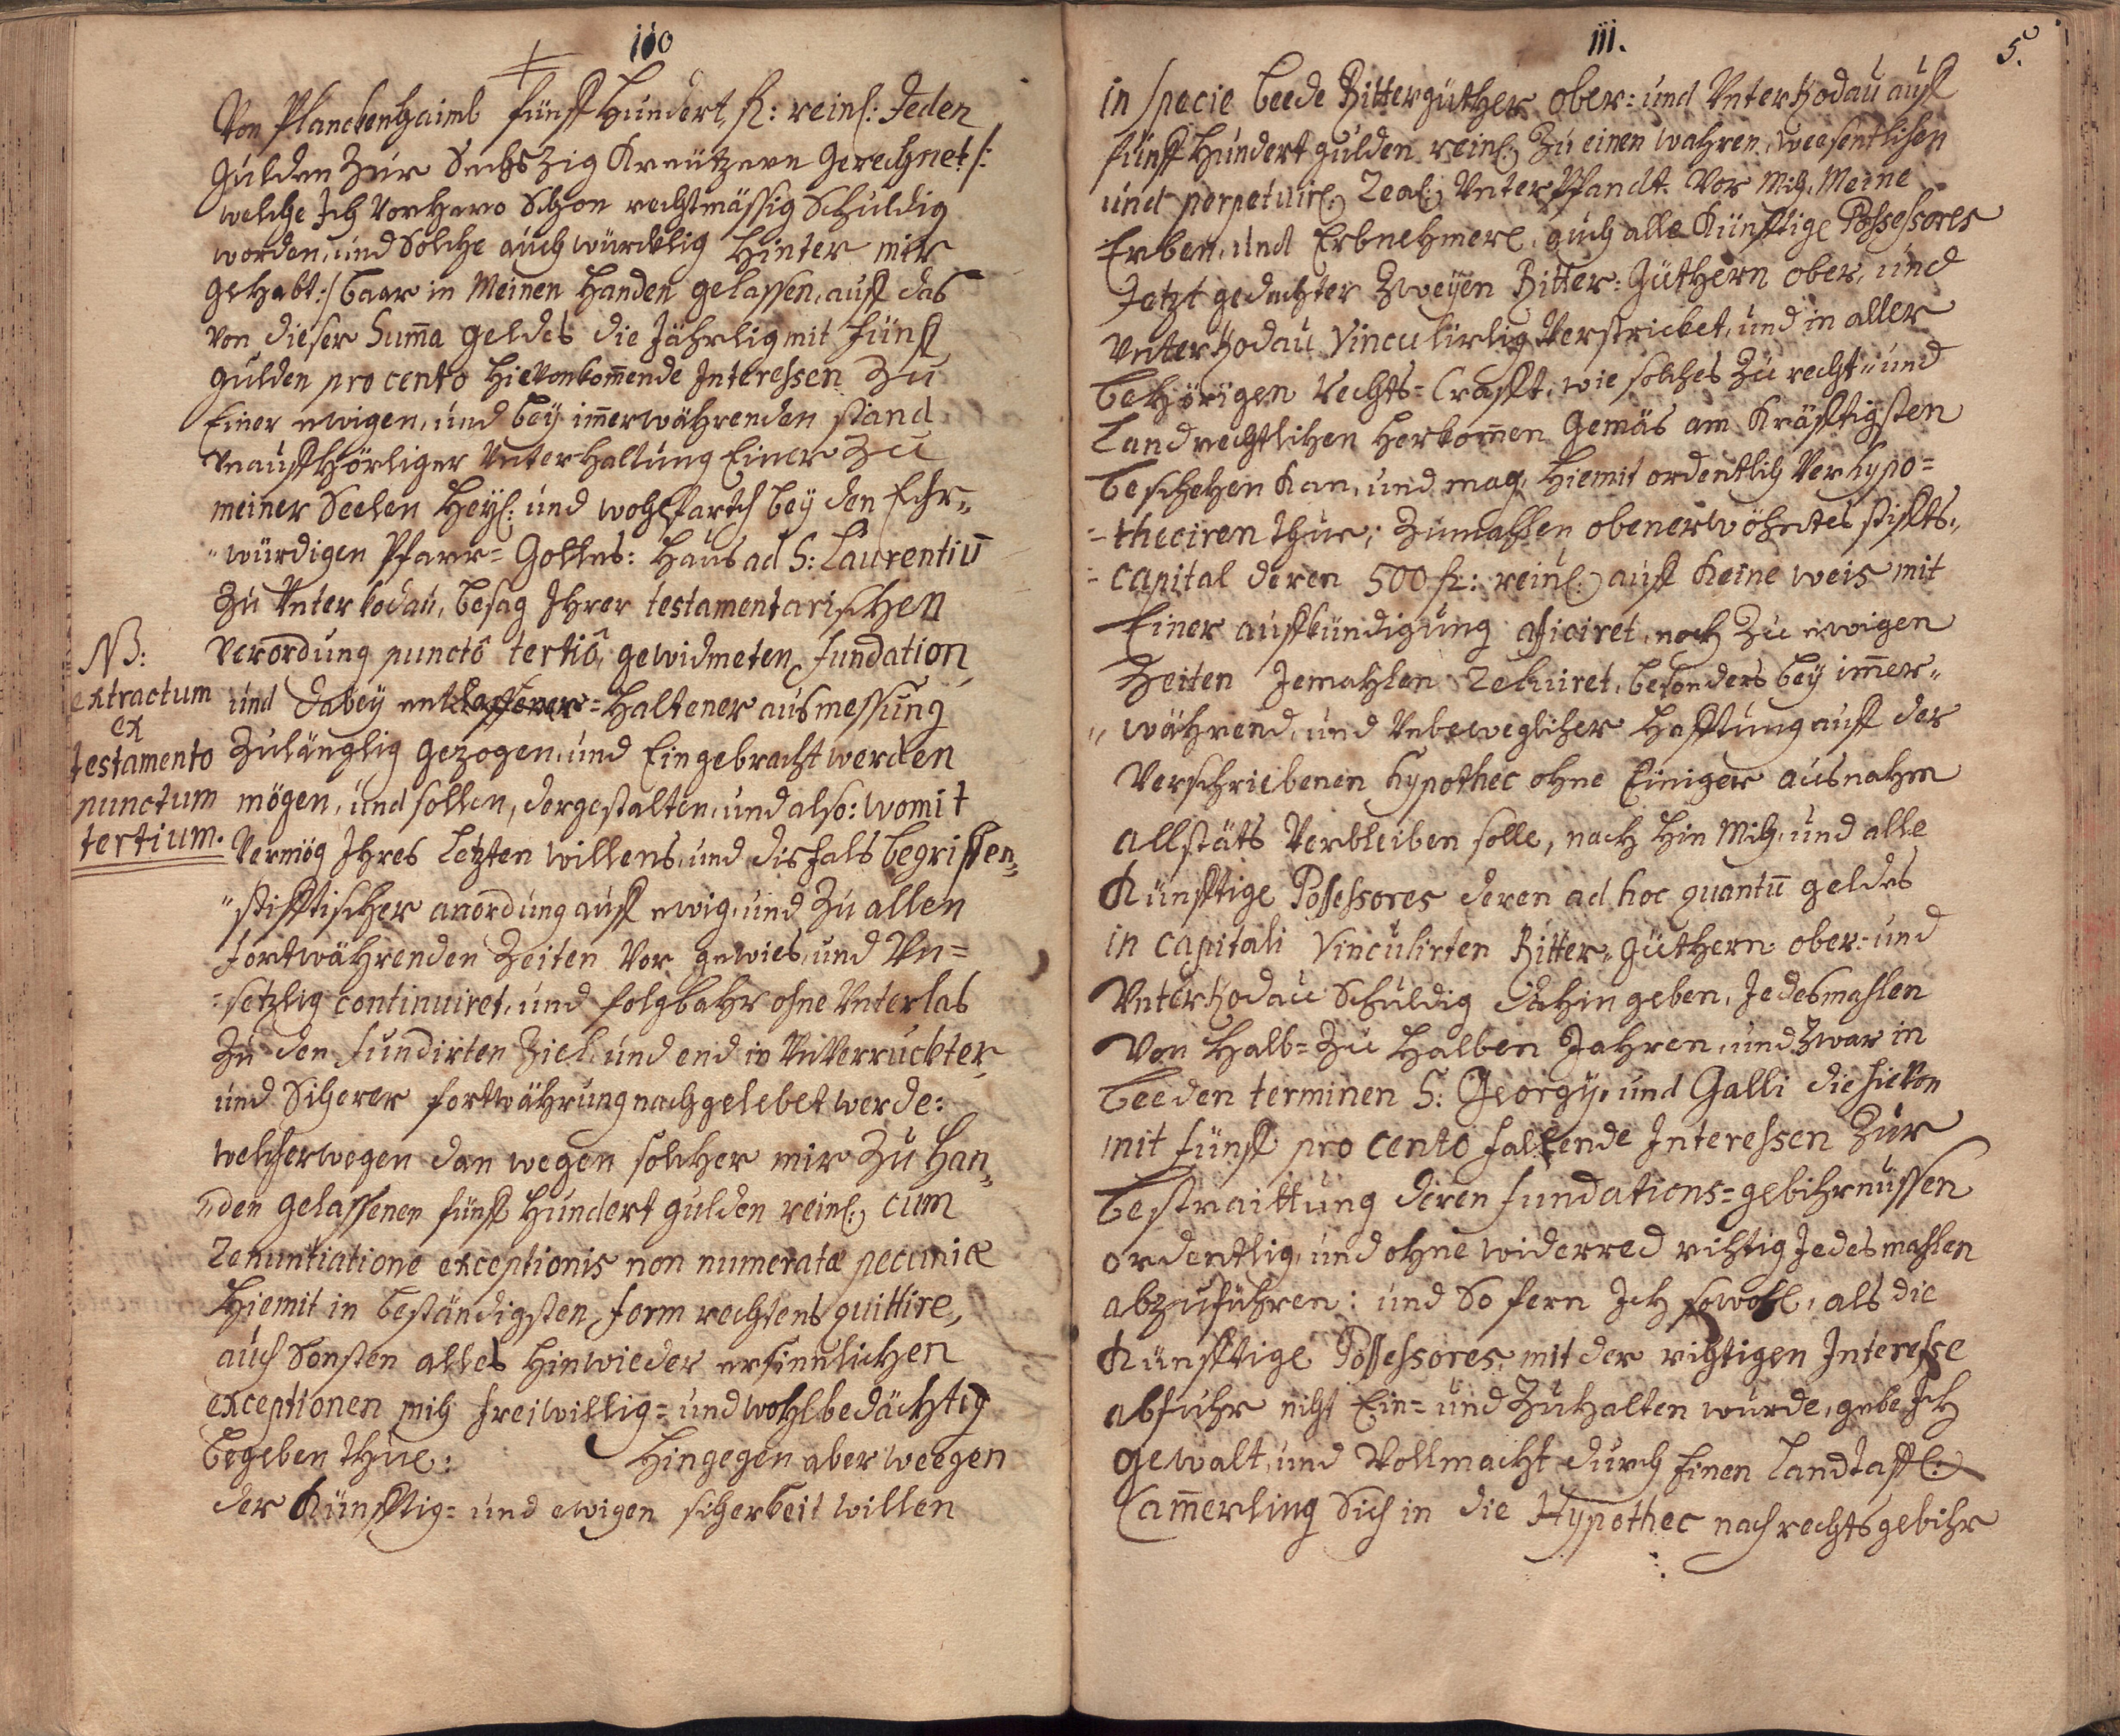 110
Von Planckenhaimb fünff Hundert fl: reinl: Jeden
gulden Zur Sechszig Kreützern gerechnet /:
welche Ich Vorhero Schon rechtmässig Schuldig
worden, und Solche auch würcklig Hinter mir
gehabt :/ baar in Meinen Handen gelassen, auff das
von dieser Suma geldes die Jährlig mit fünff
gulden pro cento hievonkomende Interessen Zu
Einer ewigen, und bey imerwährenden stand
Unauffhörliger Unterhaltung Einer Zu
meiner Seelen Heyl: und wohlfarth bey den Ehr„
„würdigen Pfarr= Gottes: Haus ad S: Laurentiū
Zu Unterkodau, besag Ihrer testamentarischen
NB:
extractum
ex
testamento
punctum
tertium.
Verordung punctô tertiô, gewidmeten fundation,
und dabey =Haltener ausmessung
Zulänglig gezogen, und Eingebracht werden
mögen, und sollen, dergestalten, und also: womit
Vermög Ihres Letzten willens, und disfals begriffen„
„stifftischer anordung auff ewig, und Zu allen
fortwährenden Zeiten Vor gewies, und Un=
=setzlig continuiret, und folgbahr ohne Unterlas
Zu den fundirten Ziel, und end in UnVerruckter,
und Sicherer fortwährung nachgelebet werde:
welcherwegen dan wegen solcher mir Zu Han„
„den gelassenen fünff Hundert gulden reinl: cum
Renuntiatione exceptionis non numeratæ pecuniæ
Hiemit in beständigsten form rechtens quittire,
auch Sonsten alles hinwieder ersinnlichen
exceptionen mich freiwillig= und wohlbedächtig
begeben thue: Hingegen aber weegen
der Künfftig= und ewigen sicherheit willen
111.
5.
in specie beede Rittergüther ober= und Unterkodau auff
fünff Hundert gulden reinl: Zu einen wahren, weesentlichen
und perpetuirl: Real: UnterPfandt. Vor Mich, Meine
Erben, und Erbnehmere, auch alle Künfftige Possessores
Jetzt gedachter Zweyen Ritter=Güthern ober, und
Unterkodau Vinculirlig Verstricket, und in aller
behörigen Rechts=Crafft, wie solches Zu recht„ und
Landrechtlichen Herkomen Gemäs am Kräfftigsten
beschehen kan, und mag, Hiemit ordentlich Verhypo=
=theciren thue; Zumassen obenerwöhntes stiffts„
=capital deren 500 fl: reinl: auff Keine weis mit
Einer auffkündigung aficiret, noch Zu ewigen
Zeiten Jemahlen Reluiret, besonders bey imer„
„während, und Unbeweglicher Hafftung auff der
Verschriebenen Hypothec ohne Einiger ausnahm
allstäts Verbleiben solle, nach Hin Mich, und alle
Künfftige Possessores deren ad hoc quantū geldes
in capitali Vinculirten Ritter„ güthern ober= und
Unterkodau Schuldig dahin geben, Jedesmahlen
Von Halb= Zu Halben Jahren, und Zwar in
beeden terminen S: Georgy, und Galli die hievon
mit fünff pro cento fallende Interessen Zur
bestraittung deren fundations=gebihrnussen
ordentlig, und ohne widerred richtig Jedesmahlen
abzuführen: und So fern Ich sowohl, als die
Künfftige Possessores, mit der richtigen Interesse
abfuhr nicht Ein= und Zuhalten wurde, gebe Ich
gewalt, und Vollmacht durch Einen Landtaffl:
Camerling Sich in die Hypothec nach rechtsgebihr